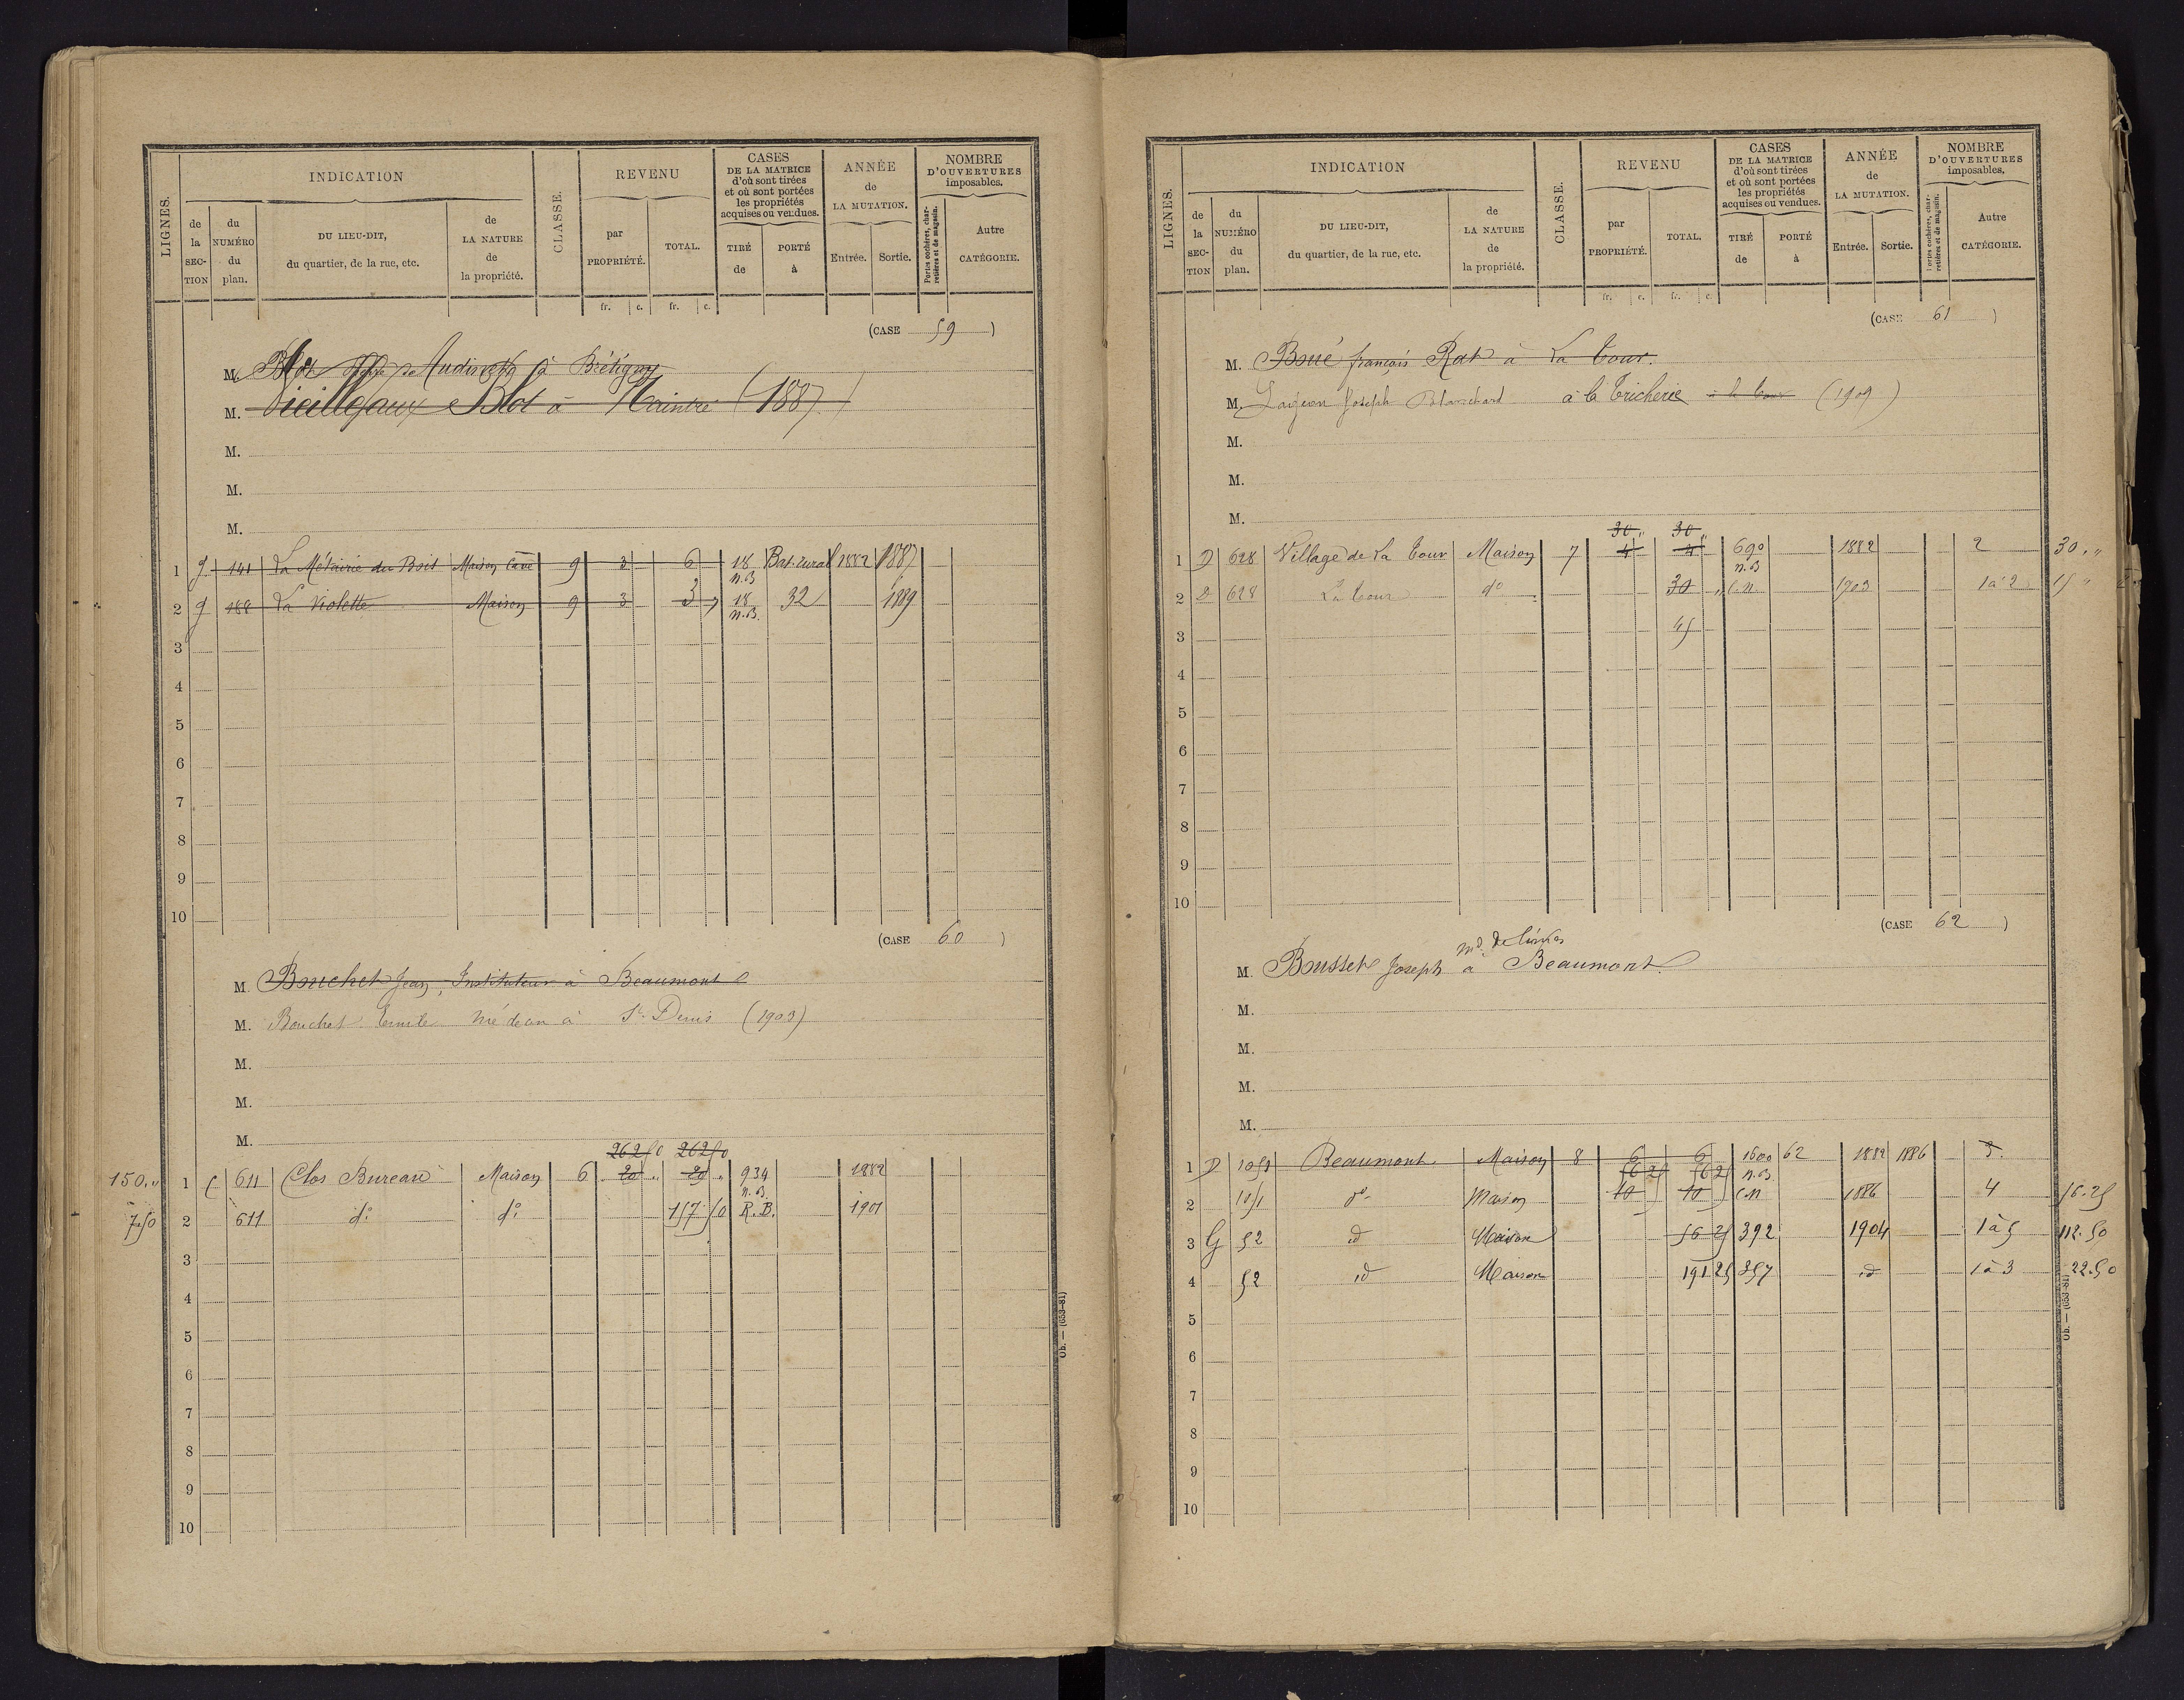 LIGNES.
INDICATION
de la SECTION
du NUMÉRO du plan.
DU LIEU-DIT, du quartier, de la rue, etc.
de LA NATURE de la propriété.
CLASSE.
REVENU
par PROPRIÉTÉ.
TOTAL.
fr. c. fr. c.
CASES DE LA MATRICE d'où sont tirées et où sont portées les propriétés acquises ou vendues.
TIRÉ de
PORTÉ à
ANNÉE de LA MUTATION.
Entrée.
Sortie.
NOMBRE D'OUVERTURES imposables.
Portes cochères, charretières et de magasin.
Autre CATÉGORIE.
(CASE 59)
M. Blot à Brétigny
M. Vieillefaux Blot à Naintré (1887)
M.
M.
M.
1 141 La Métairie du Bois Maison Cave 9 3 6 18 Bat. rural 1882 1887
n.B
2 188 La Violette Maison 9 3 3 18 32 1889
n.B.
3
4
5
6
7
8
9
10
(CASE 60)
M. Bouchet Jean, Instituteur à Beaumont
M. Bouchet Emile à St Denis (1903)
M.
M.
M.
262 50 262 50
150 " 1 C 611 Clos Bureau Maison 6 20 " 20 " 934 1882
n.B.
7.50 2 611 do do 157 50 R.B. 1901
3
4
5
6
7
8
9
10
Ob. — (653-81)
LIGNES.
INDICATION
de la SECTION
du NUMÉRO du plan.
DU LIEU-DIT, du quartier, de la rue, etc.
de LA NATURE de la propriété.
CLASSE.
REVENU
par PROPRIÉTÉ.
TOTAL.
fr. c. fr. c.
CASES DE LA MATRICE d'où sont tirées et où sont portées les propriétés acquises ou vendues.
TIRÉ de
PORTÉ à
ANNÉE de LA MUTATION.
Entrée.
Sortie.
NOMBRE D'OUVERTURES imposables.
Portes cochères, charretières et de magasin.
Autre CATÉGORIE.
(CASE 61)
M. Boué françois Rat à La Tour.
M. Joseph Blanchard à la Tricherie à la Tour (1909)
M.
M.
M.
30 " 30 "
1 D 628 Village de La Tour Maison 7 4 4 690 1882 2 30 "
n.B
2 D 628 La Tour do 30 " C.N. 1903 1 à 2 15 "
3 45
4
5
6
7
8
9
10
(CASE 62)
md de
M. Bousset Joseph à Beaumont.
M.
M.
M.
M.
1 D 1051 Beaumont Maison 8 6 6 1600 62 1882 1886 3.
56 25 56 25 n.B
2 1051 do Maison 10 10 C.N 1886 4 56.25
3 G 52 id Maison 56 25 392 1904 1 à 5 112.50
4 52 id Maison 191 25 357 id 1 à 3 22.50
5
6
7
8
9
10
Ob. — (653-81)